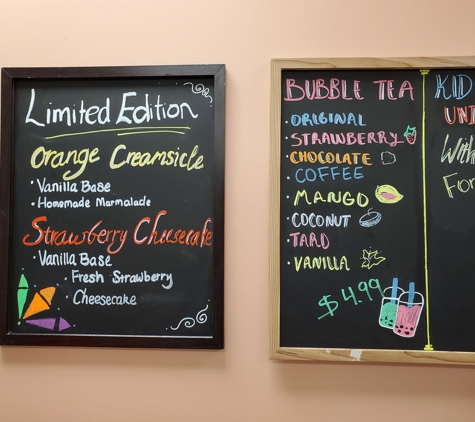 Limited Edition
Orange Creamsicle
• Vanilla Base
• Homemade Marmalade
Strawberry Cheesecake
• Vanilla Base
• Fresh Strawberry
• Cheesecake
BUBBLE TEA
• ORIGINAL
• STRAWBERRY
• CHOCOLATE
• COFFEE
• MANGO
• COCONUT
• TARO
• VANILLA
$4.99
KID
UNI
With
For